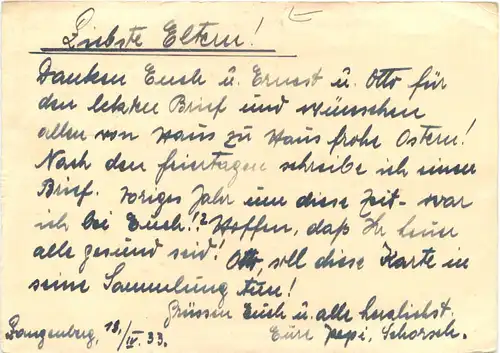 Liebste Eltern!
Danken Euch u. Ernest u. Otto für
den letzten Brief und wünschen
allen von Haus zu Haus frohe Ostern!
Nach den feiertagen schreibe ich einen
Brief. Voriges Jahr um diese Zeit - war
ich bei Euch!! Hoffen, daß Ihr
alle gesund seid! Otto, soll diese Karte in
seine Sammlung tun!
Grüssen Euch u. alle herzlichst.
Eure Pepi, Schorsch.
Langenberg, 13./IV. 33.